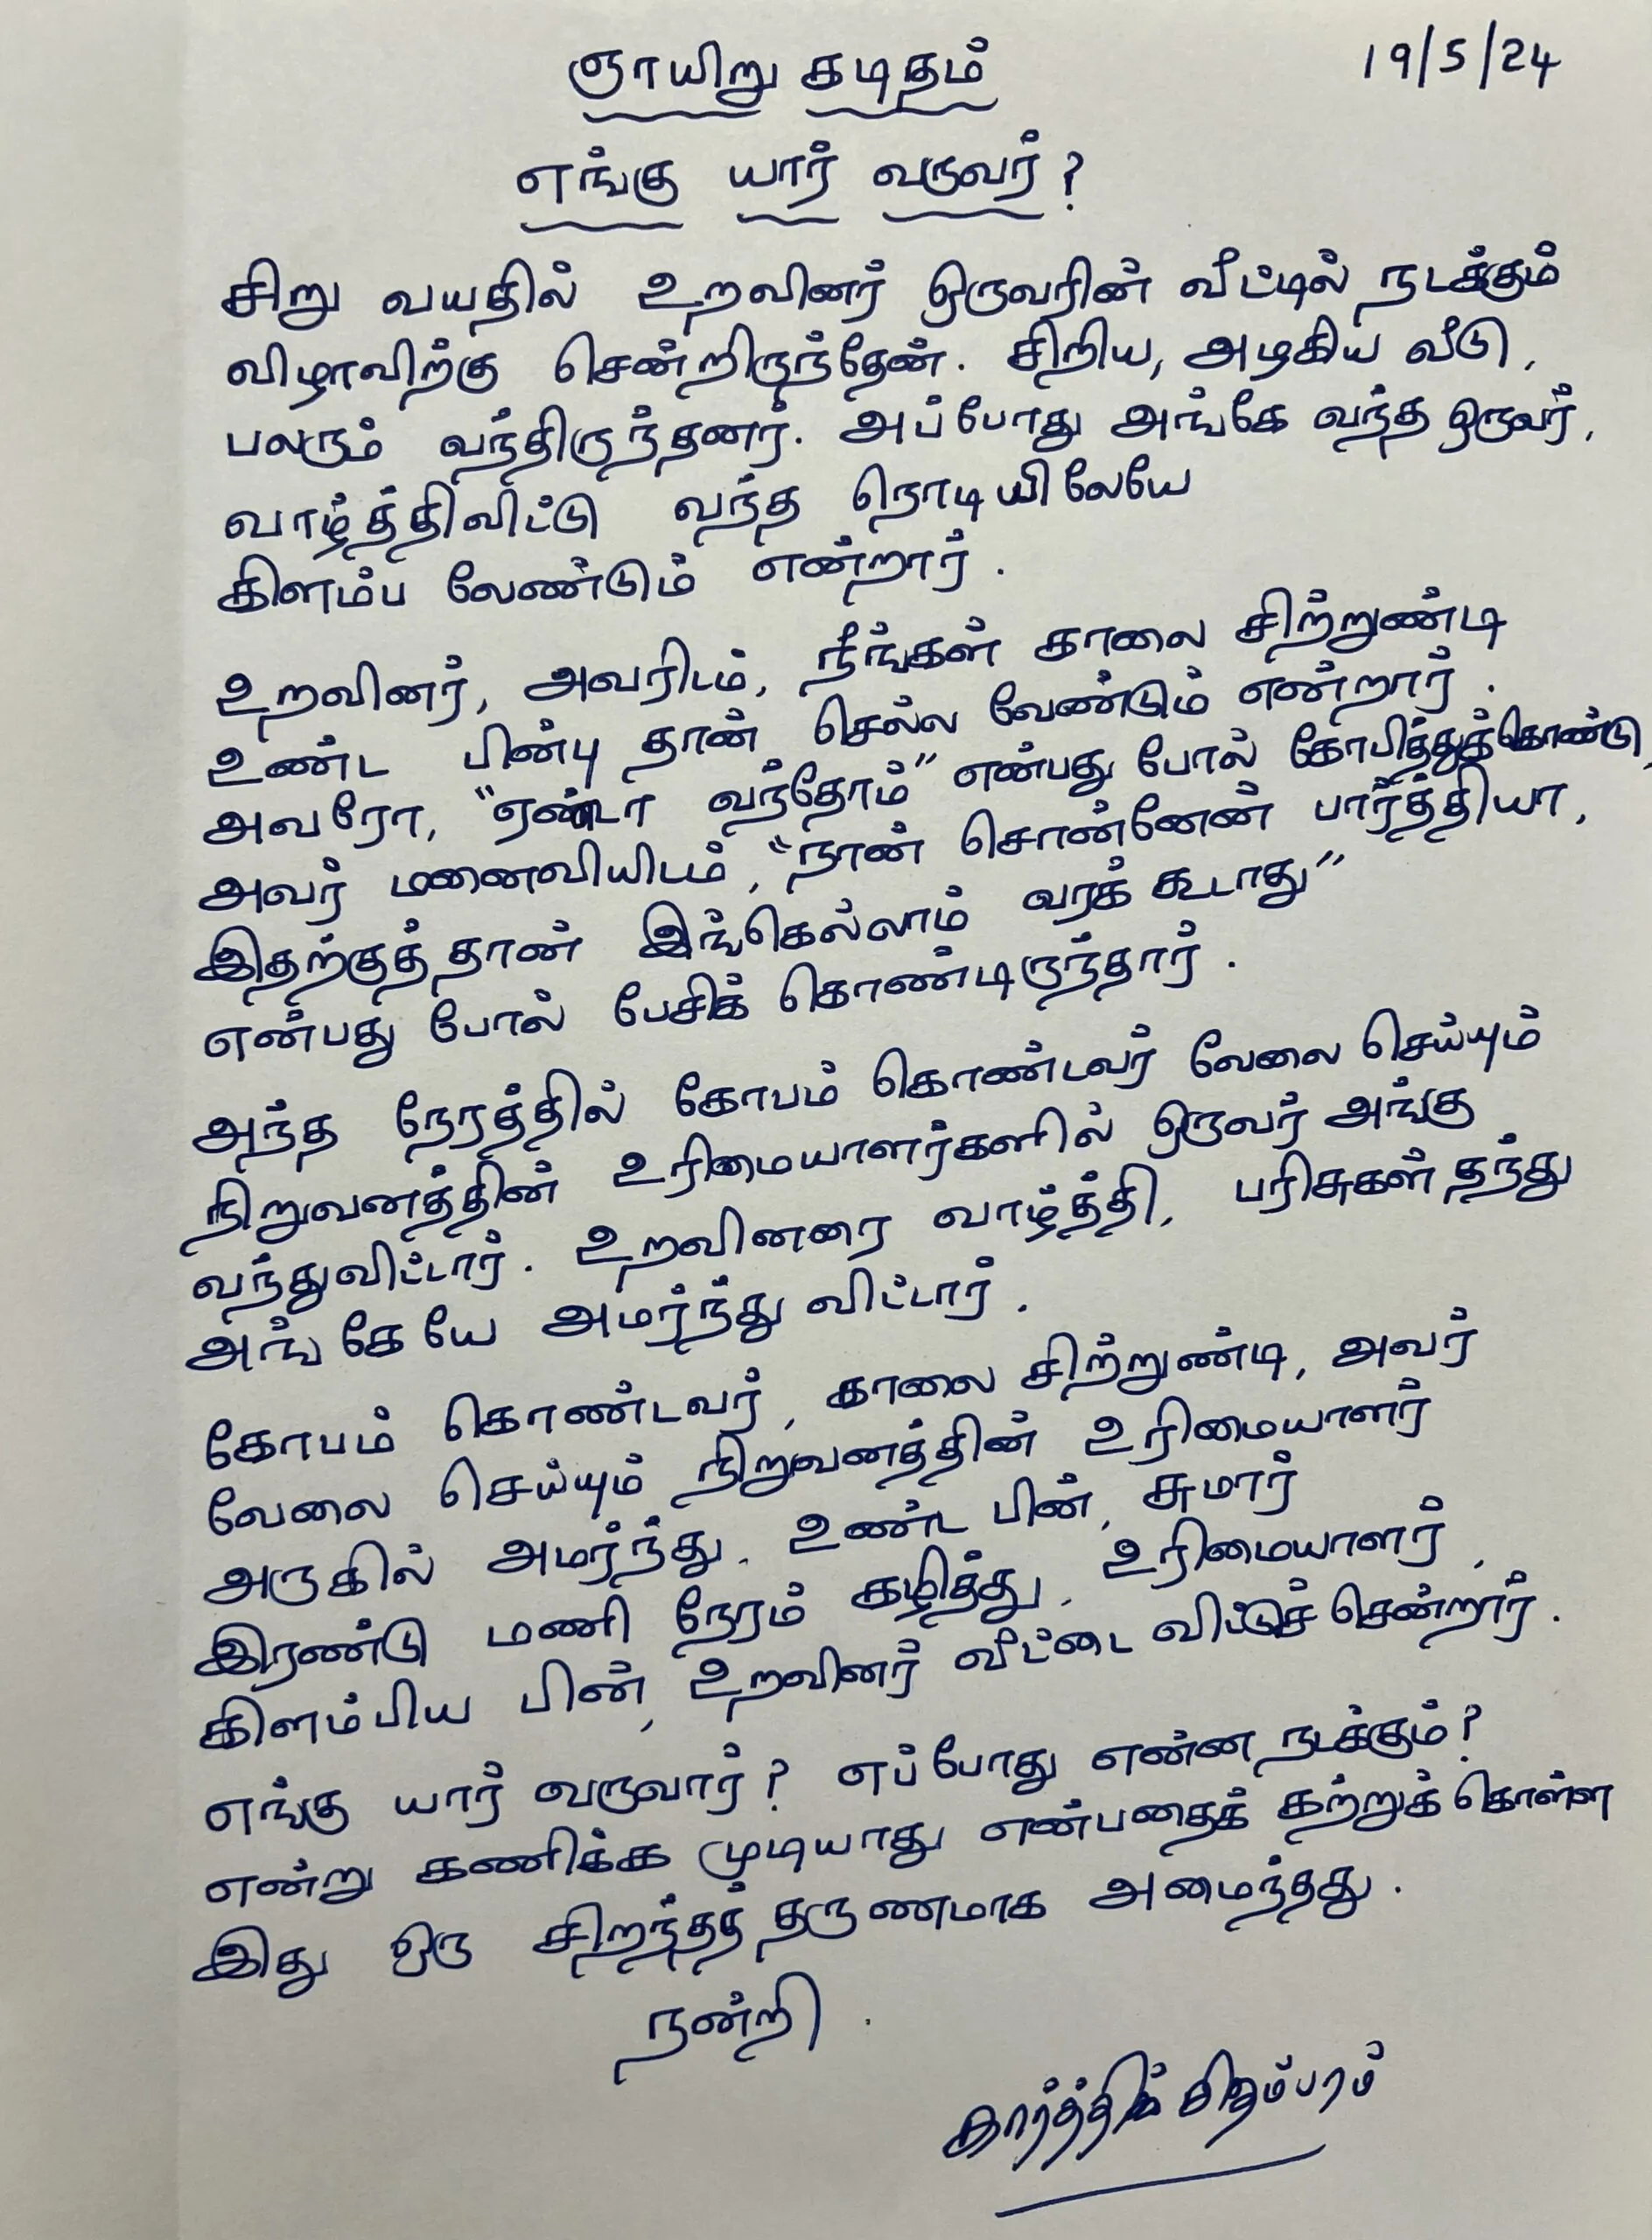 ஞாயிறு கடிதம்
19/5/24
எங்கு யார் வருவர்?
சிறு வயதில் உறவினர் ஒருவரின் வீட்டில் நடக்கும்
விழாவிற்கு சென்றிருந்தேன். சிறிய, அழகிய வீடு,
பலரும் வந்திருந்தனர். அப்போது அங்கே வந்த ஒருவர்,
வாழ்த்திவிட்டு வந்த நொடியிலேயே
கிளம்ப வேண்டும் என்றார்.
உறவினர், அவரிடம், நீங்கள் காலை சிற்றுண்டி
உண்ட பின்பு தான் செல்ல வேண்டும் என்றார்.
அவரோ, "ஏண்டா வந்தோம்" என்பது போல் கோபித்துக்கொண்டு,
அவர் மனைவியிடம், "நான் சொன்னேன் பார்த்தியா,
இதற்குத்தான் இங்கெல்லாம் வரக் கூடாது"
என்பது போல் பேசிக் கொண்டிருந்தார்.
அந்த நேரத்தில் கோபம் கொண்டவர் வேலை செய்யும்
நிறுவனத்தின் உரிமையாளர்களில் ஒருவர் அங்கு
வந்துவிட்டார். உறவினரை வாழ்த்தி, பரிசுகள் தந்து
அங்கேயே அமர்ந்து விட்டார்.
கோபம் கொண்டவர், காலை சிற்றுண்டி, அவர்
வேலை செய்யும் நிறுவனத்தின் உரிமையாளர்
அருகில் அமர்ந்து, உண்ட பின், சுமார்
இரண்டு மணி நேரம் கழித்து, உரிமையாளர்,
கிளம்பிய பின், உறவினர் வீட்டை விட்டுச் சென்றார்.
எங்கு யார் வருவார்? எப்போது என்ன நடக்கும்?
என்று கணிக்க முடியாது என்பதைக் கற்றுக் கொள்ள
இது ஒரு சிறந்தத் தருணமாக அமைந்தது.
நன்றி.
கார்த்திக் சிதம்பரம்